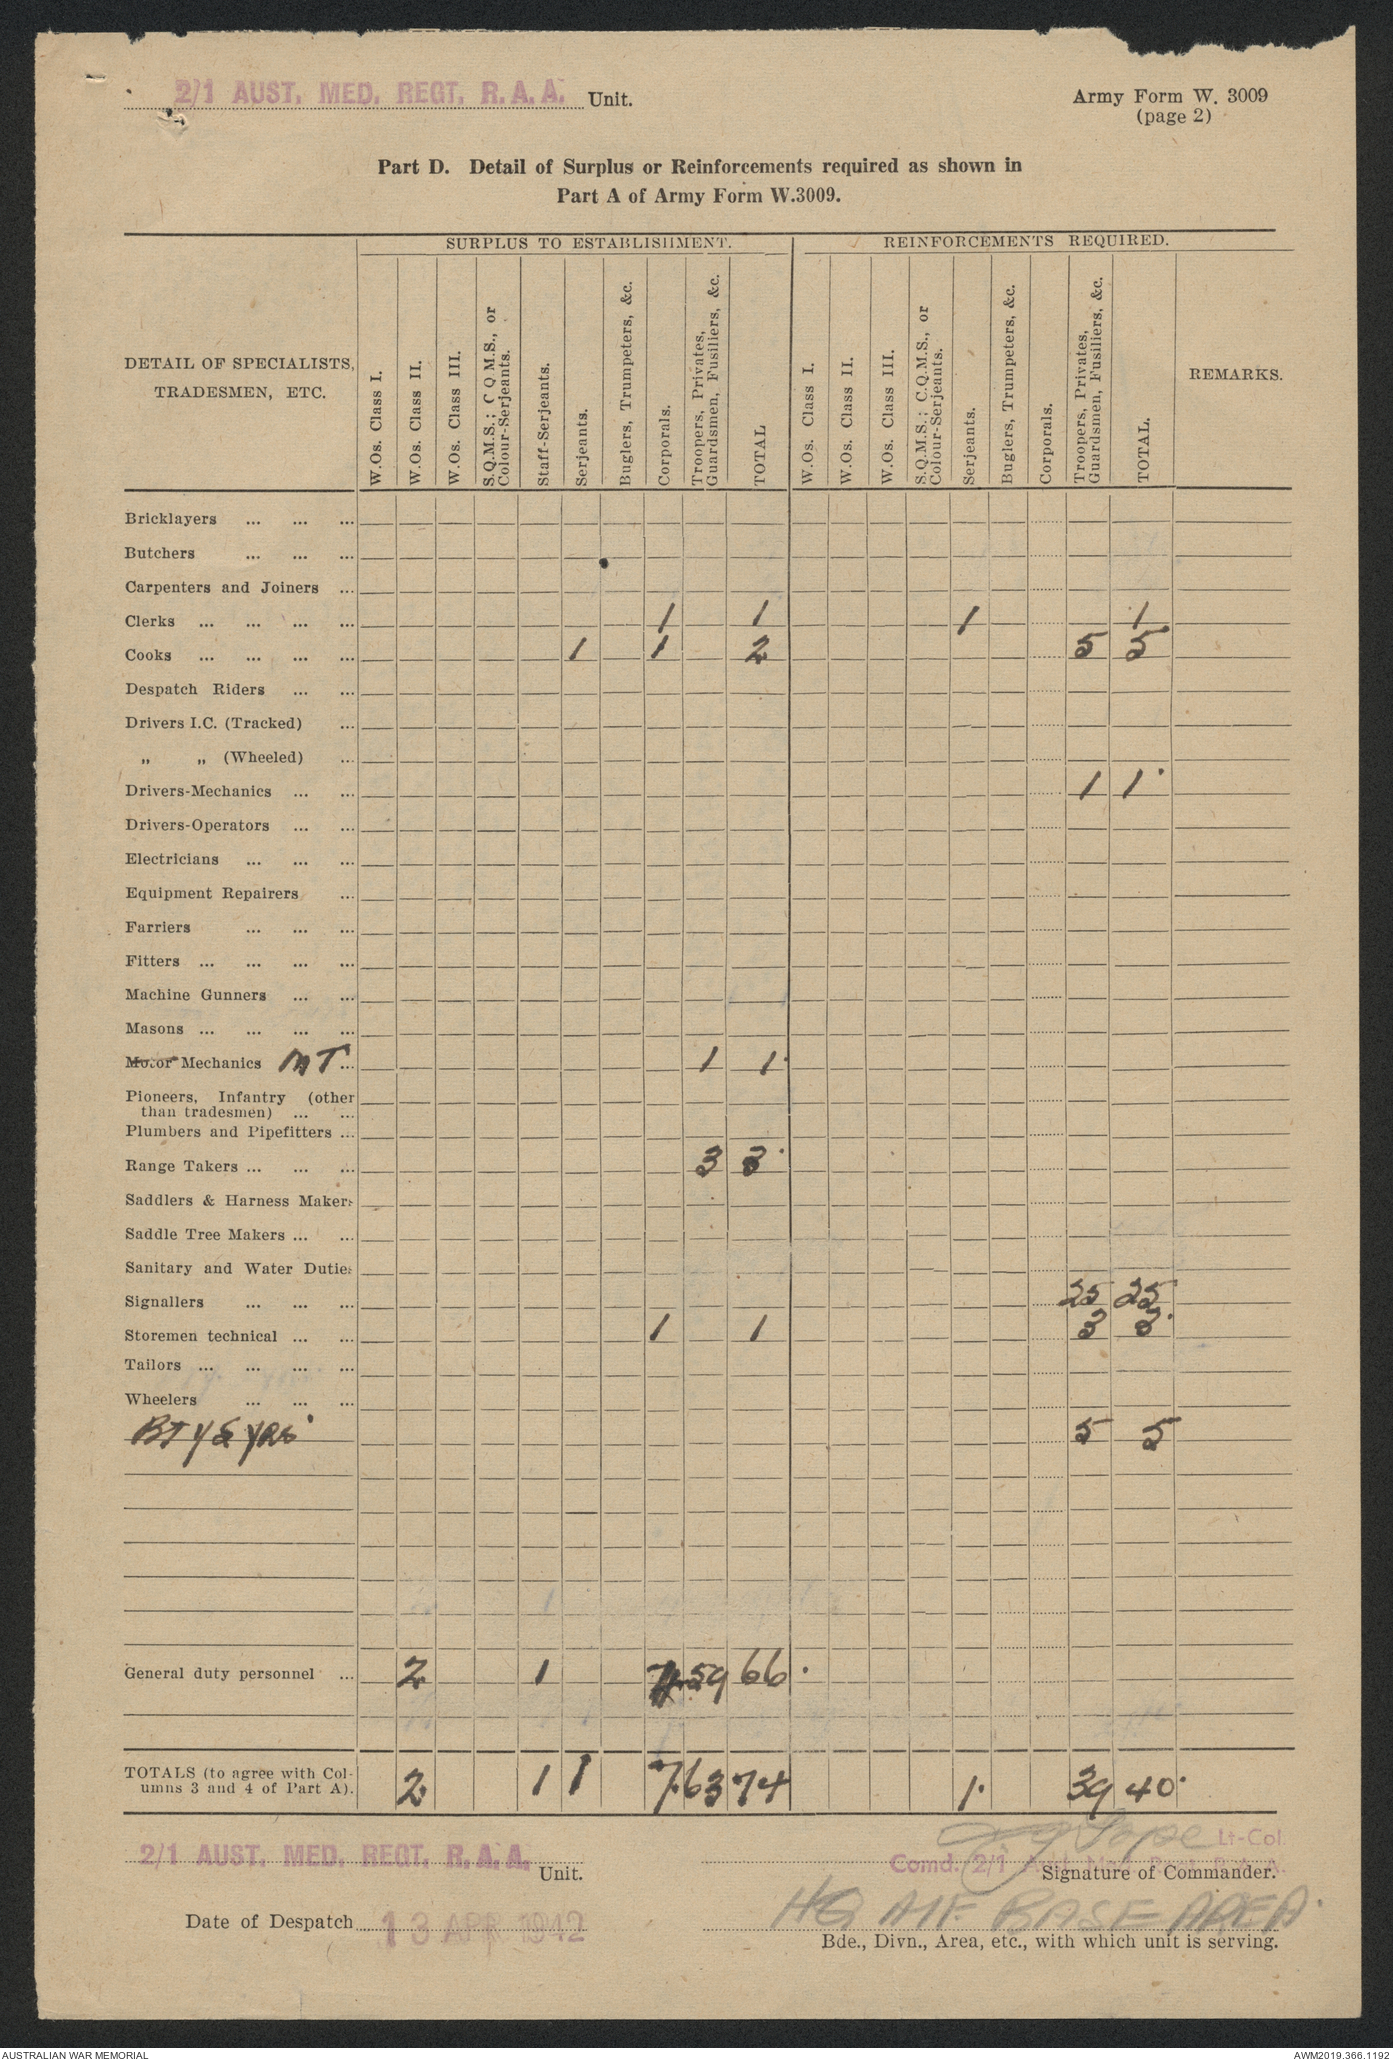 2/1 AUST. MED. REGT. R.A.A. Unit.
Army Form W. 3009
(page 2)
Part D. Detail of Surplus or Reinforcements required as shown in
Part A of Army Form W.3009.
SURPLUS TO ESTABLISHMENT. REINFORCEMENTS REQUIRED.
DETAIL OF SPECIALISTS,
TRADESMEN, ETC.
W.Os. Class I.
W.Os. Class II.
W.Os. Class III.
S.Q.M.S.; C Q M.S., or
Colour-Serjeants.
Staff-Serjeants.
Serjeants.
Buglers, Trumpeters, &c.
Corporals.
Troopers, Privates,
Guardsmen, Fusiliers, &c.
TOTAL
W.Os. Class I.
W.Os. Class II.
W.Os. Class III.
S.Q.M.S.; C.Q.M.S., or
Colour-Serjeants.
Serjeants.
Buglers, Trumpeters, &c.
Corporals.
Troopers, Privates,
Guardsmen, Fusiliers, &c.
TOTAL.
REMARKS.
Bricklayers ... ... ...
Butchers ... ... ...
Carpenters and Joiners ...
Clerks ... ... ... ... 1 1 1 1
Cooks ... ... ... ... 1 1 2 5 5
Despatch Riders ... ...
Drivers I.C. (Tracked) ...
„ „ (Wheeled) ...
Drivers-Mechanics ... ... 1 1
Drivers-Operators ... ...
Electricians ... ... ...
Equipment Repairers ...
Farriers ... ... ...
Fitters ... ... ... ...
Machine Gunners ... ...
Masons ... ... ... ...
Motor Mechanics MT ... 1 1
Pioneers, Infantry (other
than tradesmen) ... ...
Plumbers and Pipefitters ...
Range Takers ... ... ... 3 3
Saddlers & Harness Makers
Saddle Tree Makers ... ...
Sanitary and Water Duties
Signallers ... ... ... 25 25
Storemen technical ... ... 1 1 3 3
Tailors ... ... ... ...
Wheelers ... ... ...
5 5
General duty personnel ... 2 1 59 66
TOTALS (to agree with Col-
umns 3 and 4 of Part A). 2 1 1 7 63 74 1 39 40
Lt-Col.
2/1 AUST. MED. REGT. R.A.A. Unit.
Comd. 2/1
Signature of Commander.
Date of Despatch 13 APR 1942
HQ AIF BASE AREA.
Bde., Divn., Area, etc., with which unit is serving.
AUSTRALIAN WAR MEMORIAL
AWM2019.366.1192